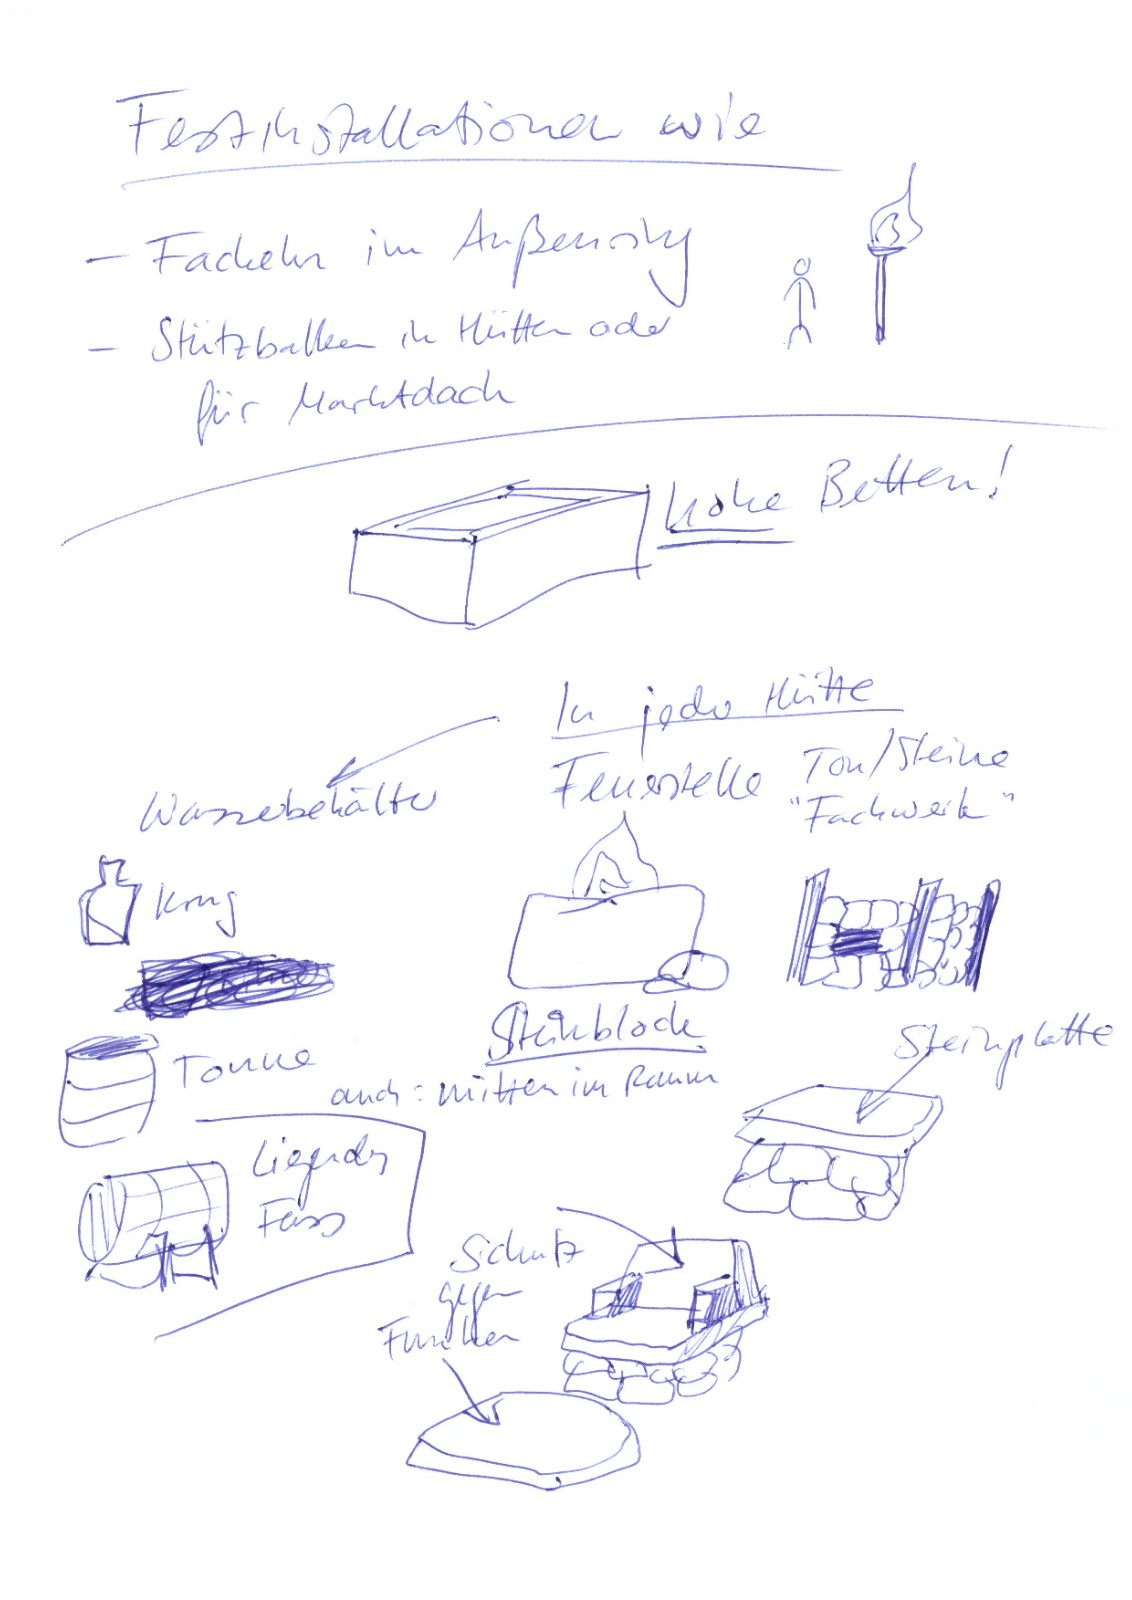 Festinstallationen wie
- Fackeln im Außenring
- Stützbalken in Hütten oder
für Marktdach
hohe Betten!
In jeder Hütte
Feuerstelle
Ton/Steine
"Fachwerk"
Wasserbehälter
Krug
Tonne
Liegendes
Fass
Steinblock
auch: mitten im Raum
Steinplatte
Schutz
gegen
Funken